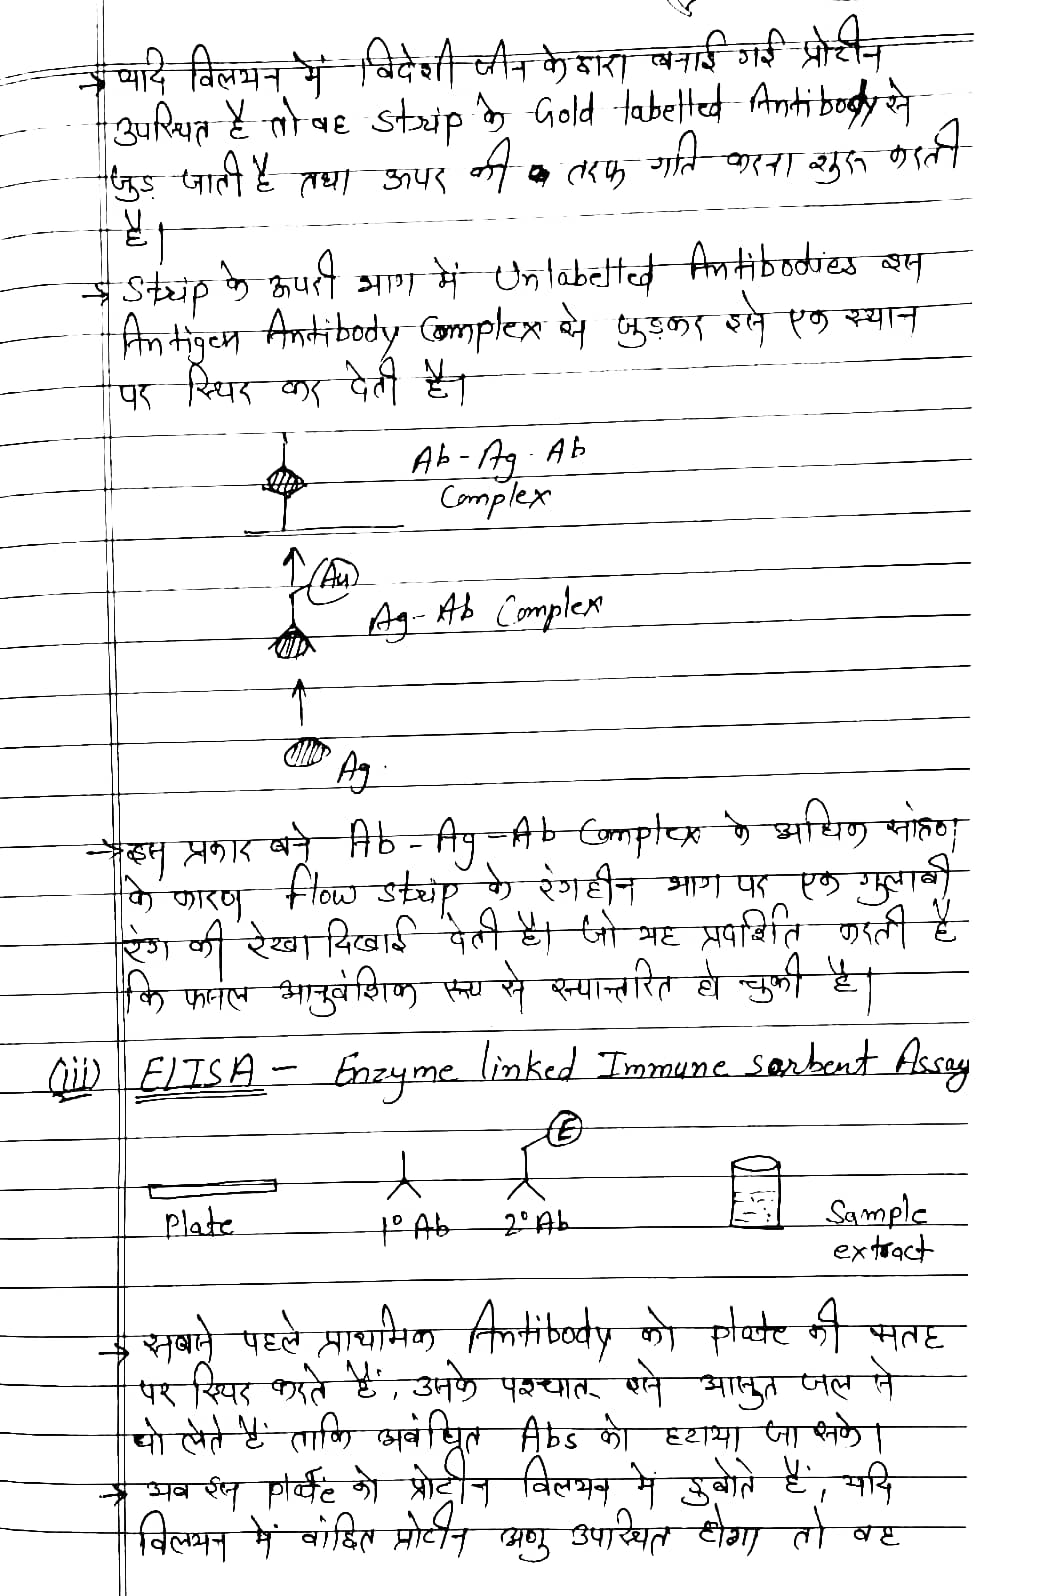 → यदि विलयन में विदेशी जीन के द्वारा बनाई गई प्रोटीन
उपस्थित है तो वह Strip के Gold labelled Antibody से
जुड़ जाती है तथा ऊपर की तरफ गति करना शुरू करती
है।
→ Strip के ऊपरी भाग में Unlabelled Antibodies इस
Antigen Antibody Complex से जुड़कर इसे एक स्थान
पर स्थिर कर देती है।
Ab - Ag - Ab
Complex
Au
Ag - Ab Complex
Ag.
→ इस प्रकार बने Ab - Ag - Ab Complex के अधिक सांद्रण
के कारण flow strip के रंगहीन भाग पर एक गुलाबी
रंग की रेखा दिखाई देती है। जो यह प्रदर्शित करती है
कि फसल आनुवंशिक रूप से रूपान्तरित हो चुकी है।
(iii) ELISA - Enzyme linked Immune sorbent Assay
E
Plate 1° Ab 2° Ab Sample
extract
→ सबसे पहले प्राथमिक Antibody को plate की सतह
पर स्थिर करते हैं, उसके पश्चात् इसे आसुत जल से
धो लेते हैं ताकि अबंधित Abs को हटाया जा सके।
→ अब इस plate को प्रोटीन विलयन में डुबोते हैं, यदि
विलयन में वांछित प्रोटीन अणु उपस्थित होगा तो वह